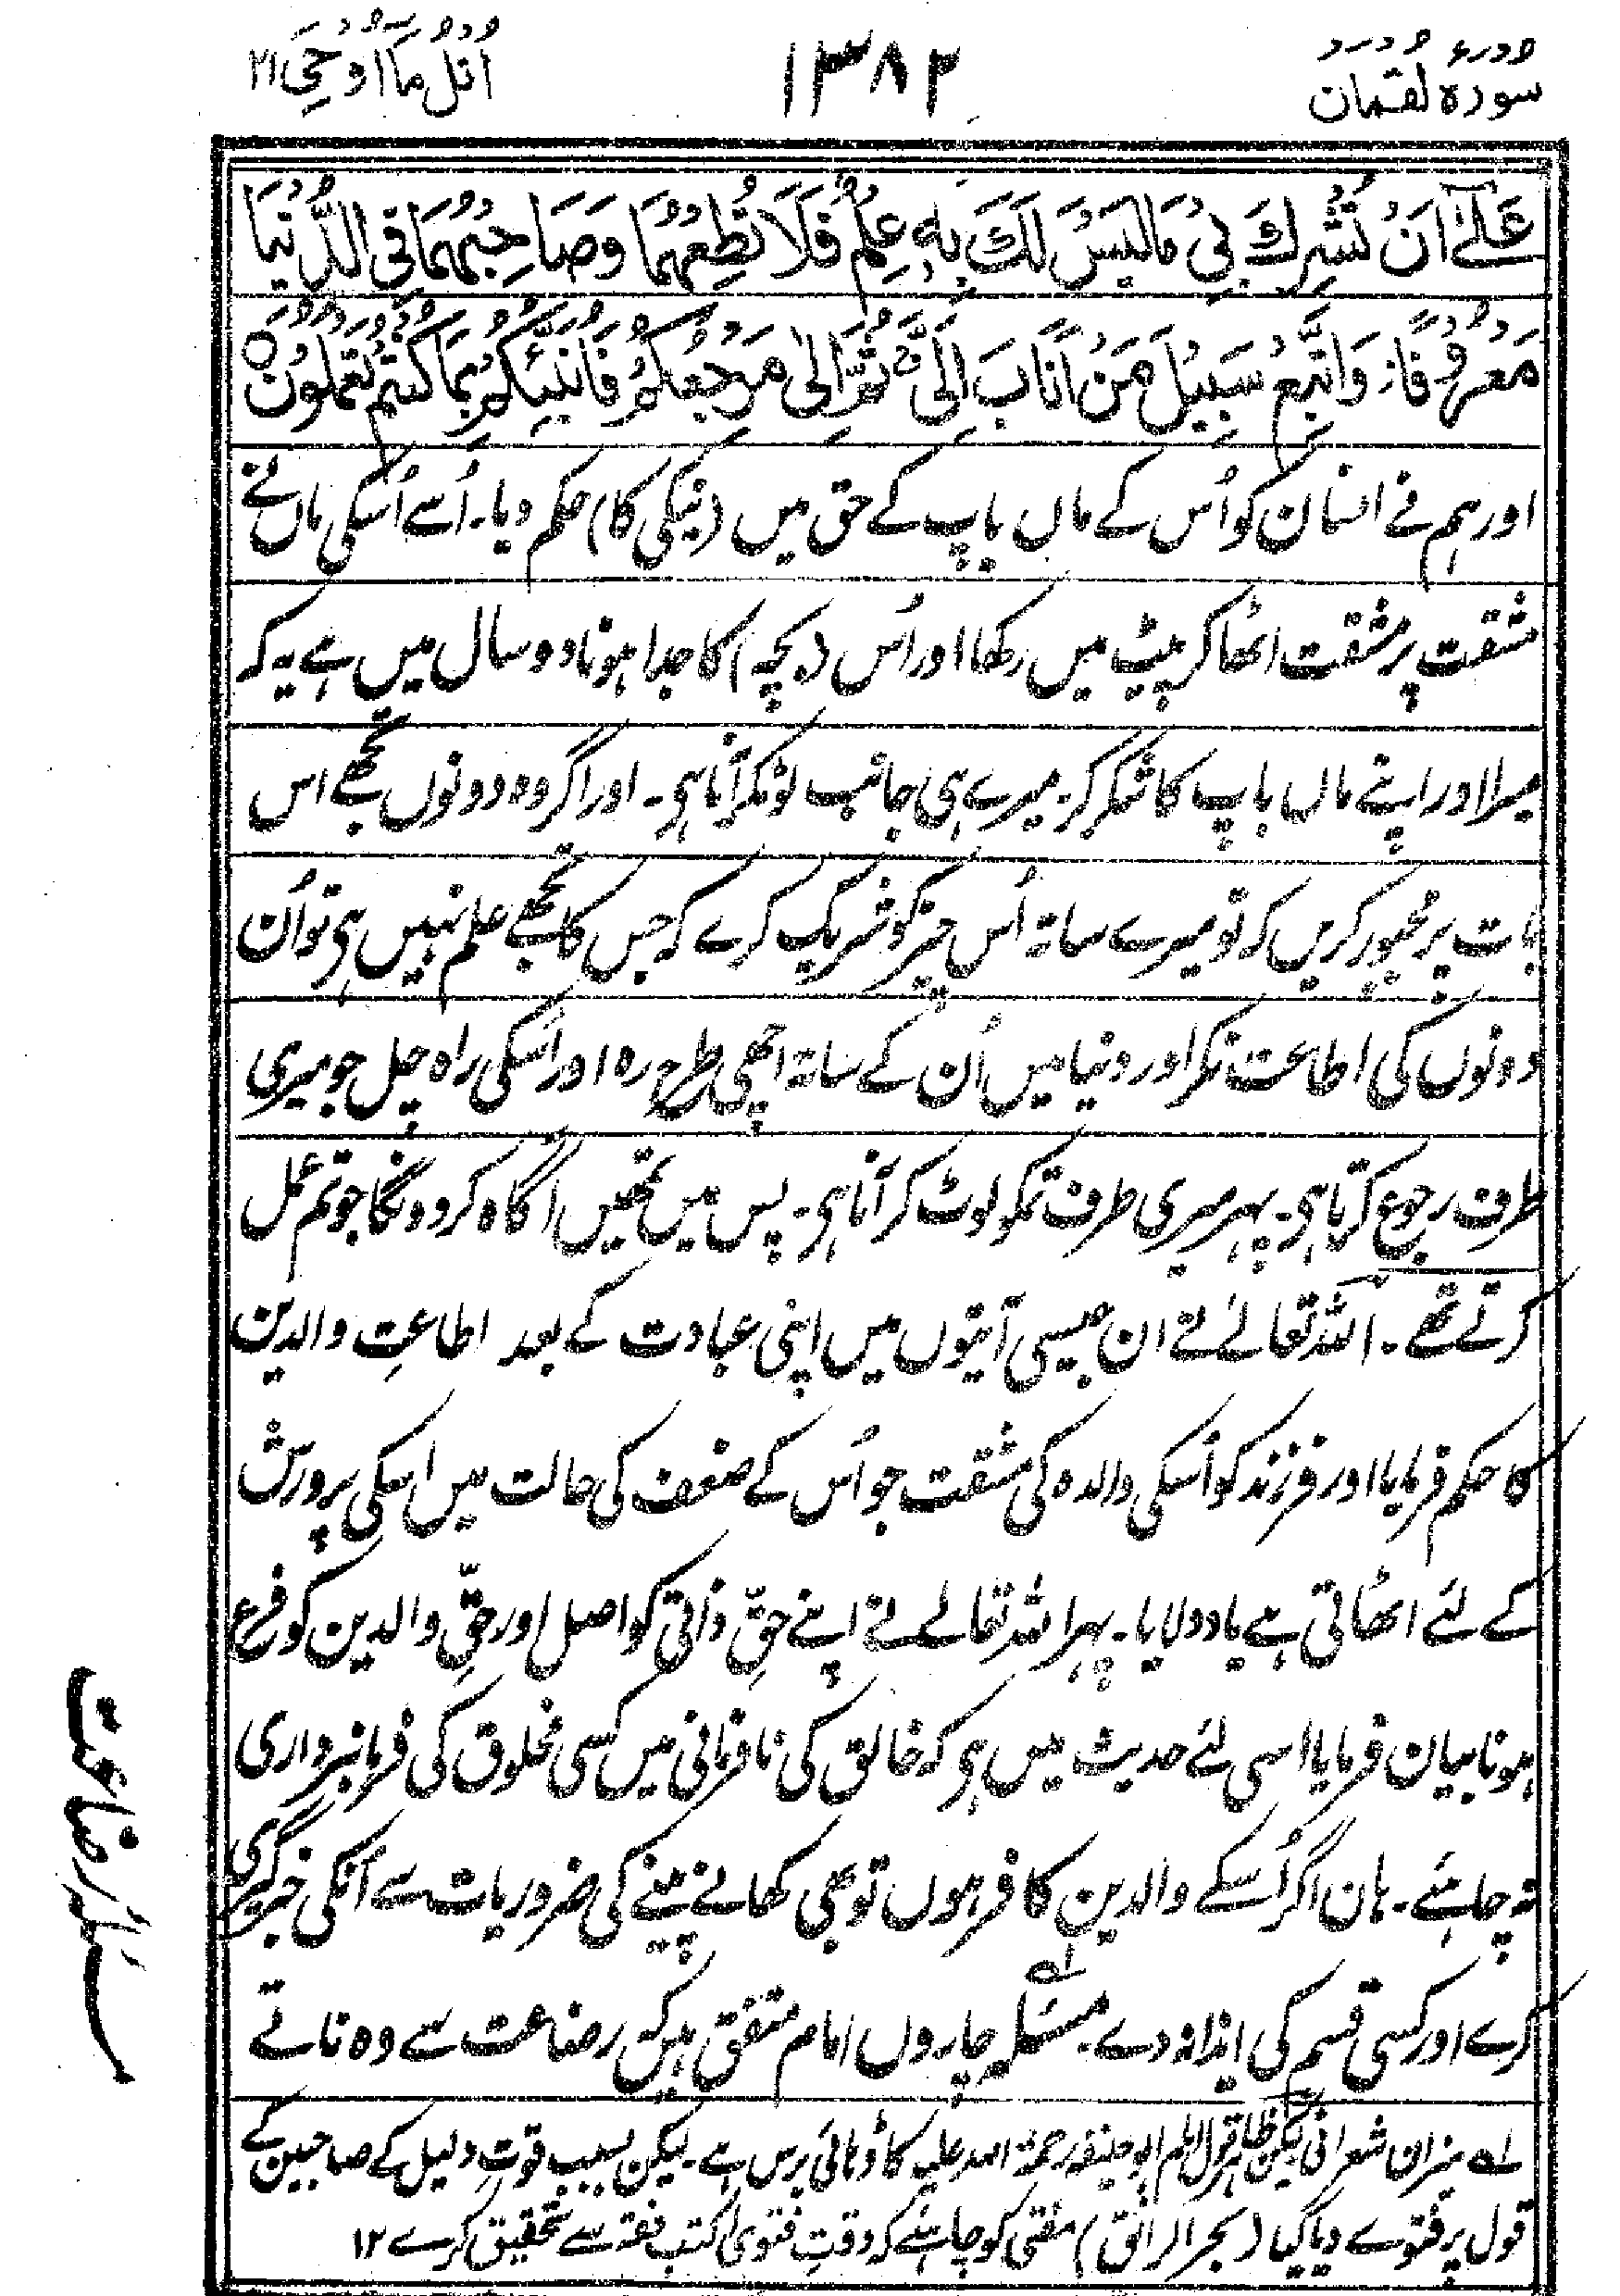 سورہ لقمان ۱۳۸۲ اُتْلُ مَآ اُوْحِیَ ۲۱
عَلٰٓی اَنْ تُشْرِكَ بِیْ مَا لَیْسَ لَكَ بِهٖ عِلْمٌ فَلَا تُطِعْهُمَا وَصَاحِبْهُمَا فِی الدُّنْیَا
مَعْرُوْفًا ز وَّاتَّبِعْ سَبِیْلَ مَنْ اَنَابَ اِلَیَّ ج ثُمَّ اِلَیَّ مَرْجِعُكُمْ فَاُنَبِّئُكُمْ بِمَا كُنْتُمْ تَعْمَلُوْنَ ○
اور ہم نے انسان کو اُس کے ماں باپ کے حق میں (نیکی کا) حکم دیا۔ اُسے اُسکی ماں نے
مشقت پر مشقت اٹھا کر پیٹ میں رکھا اور اُس (بچہ) کا جدا ہونا دو سال میں ہے یہ کہ
میرا اور اپنے ماں باپ کا شکر کر۔ میرے ہی جانب لوٹکر آنا ہی۔ اور اگر وہ دونوں تجھے اس
بات پر مجبور کریں کہ تو میرے ساتہ اُس چیز کو شریک کرے کہ جس کا تجھے علم نہیں ہی تو اُن
دونوں کی اطاعت نکر اور دنیا میں اُن کے ساتہ اچھی طرح رہ اور اسکی راہ چل جو میری
طرف رجوع کرتا ہی۔ پہر میری طرف تمکو لوٹ کر آنا ہی۔ پس میں تمھیں آگاہ کر دونگا جو تم عمل
کرتے تھے۔ اللہ تعالےٰ نے ان جیسی آیتوں میں اپنی عبادت کے بعد اطاعتِ والدین
کا حکم فرمایا اور فرزند کو اُسکی والدہ کی مشقت جو اُس کے ضعف کی حالت میں اسکی پرورش
کے لئے اٹھاتی ہے یاد دلایا۔ پہر اللہ تعالے نے اپنے حقِّ ذاتی کو اصل اور حقِّ والدین کو فرع
ہونا بیان فرمایا اسی لئے حدیث میں ہی کہ خالق کی نافرمانی میں کسی مخلوق کی فرمانبرداری
نہ چاہئے۔ ہان اگر اُسکے والدین کافر ہوں تو بھی کھانے پینے کی ضروریات سے اُنکی خبرگیری
کرے اور کسی قسم کی ایذا نہ دے۔ مسئلہ چاروں امام متفق ہیں کہ رضاعت سے وہ ناتے
مسئلۂ رضاعت
لہ میزان شعرانی لیکن ظاہر قول امام ابو حنیفہ رحمۃ اللہ علیہ کا ڈھائی برس ہے۔ لیکن بسبب قوتِ دلیل کے صاحبین کے
قول پر فتوے دیا گیا (بحر الرائق) مفتی کو چاہئے کہ وقتِ فتوی کتب فقہ سے تحقیق کرے ۱۲